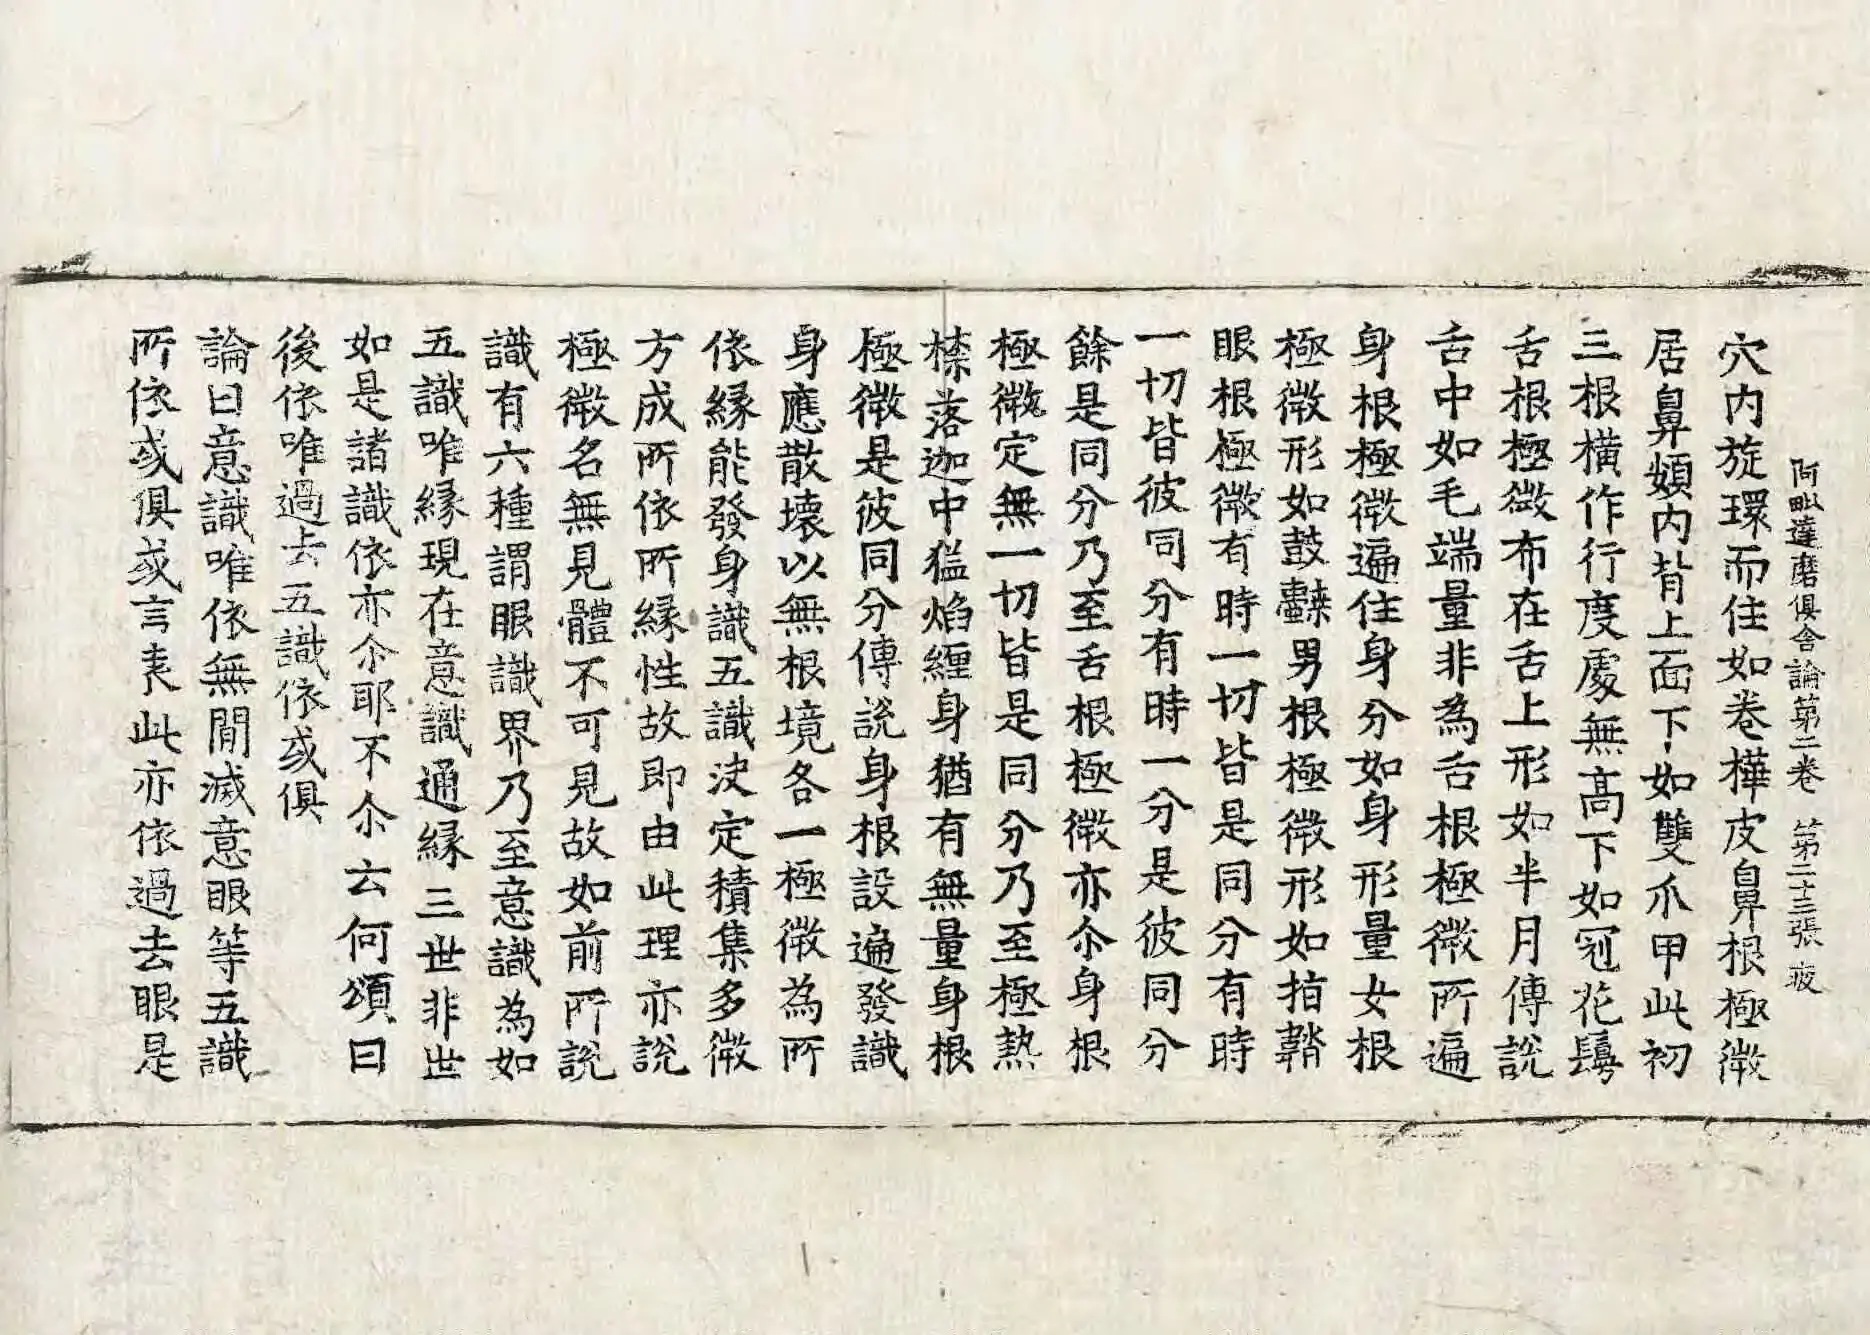 阿毗達磨俱舍論第二卷 第二十三張 疲
穴內旋環而住如卷樺皮鼻根極微
居鼻頞內背上面下如雙爪甲此初
三根橫作行度處無高下如冠花鬘
舌根極微布在舌上形如半月傳說
舌中如毛端量非為舌根極微所遍
身根極微遍住身分如身形量女根
極微形如鼓𪔜男根極微形如指韜
眼根極微有時一切皆是同分有時
一切皆彼同分有時一分是彼同分
餘是同分乃至舌根極微亦尒身根
極微定無一切皆是同分乃至極熱
㮈落迦中猛焰纏身猶有無量身根
極微是彼同分傳說身根設遍發識
身應散壞以無根境各一極微為所
依緣能發身識五識決定積集多微
方成所依所緣性故即由此理亦說
極微名無見體不可見故如前所說
識有六種謂眼識界乃至意識為如
五識唯緣現在意識通緣三世非世
如是諸識依亦尒耶不尒云何頌曰
後依唯過去五識依或俱
論曰意識唯依無間滅意眼等五識
所依或俱或言表此亦依過去眼是